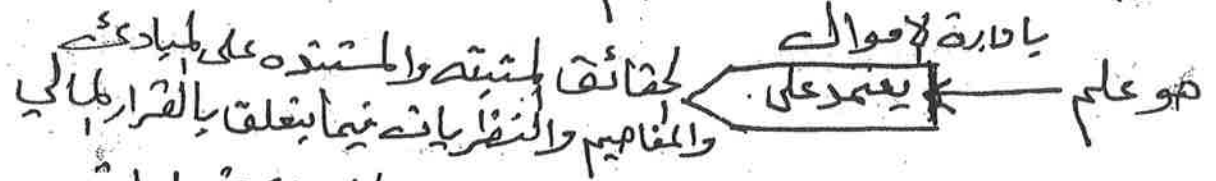 بإدارة الأموال
هو علم يعتمد على
الحقائق المثبته والمستنده على المبادئ
والمفاهيم والنظريات فيما يتعلق بالقرار المالي